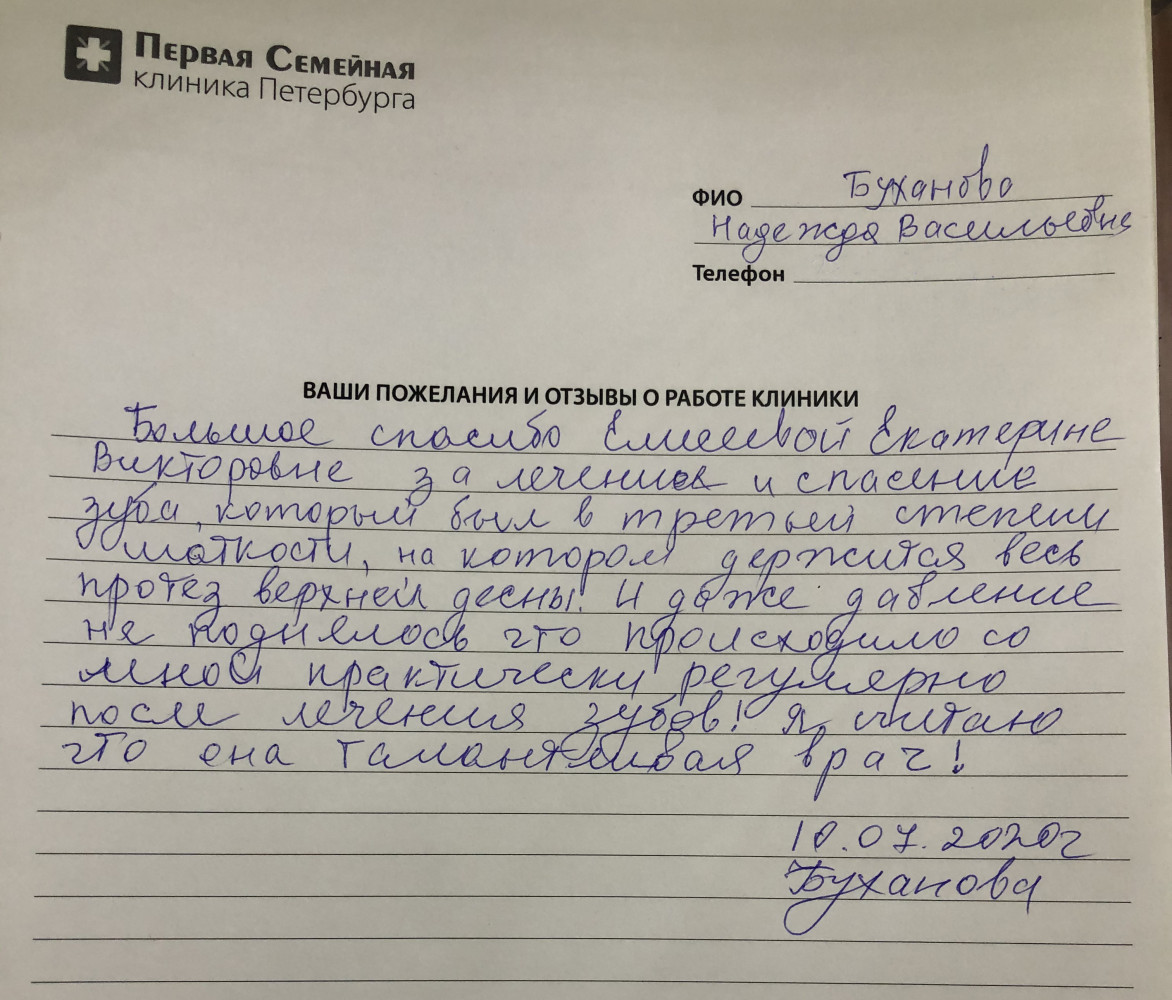 ПЕРВАЯ СЕМЕЙНАЯ
клиника Петербурга
ФИО Буханова
Надежда Васильевна
Телефон
ВАШИ ПОЖЕЛАНИЯ И ОТЗЫВЫ О РАБОТЕ КЛИНИКИ
Большое спасибо Екатерине
Викторовне за лечение и спасение
зуба, который был в третьей степени
шаткости, на котором держится весь
протез верхней десны! И даже давление
не поднялось что происходило со
мной практически регулярно
после лечения зубов! Я считаю
что она талантливая врач!
10.07.2020г
Буханова